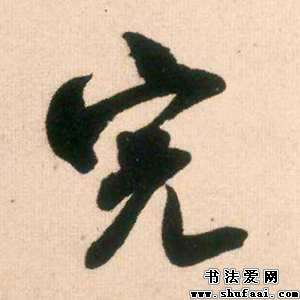 完
书法爱网
www.shufaai.com